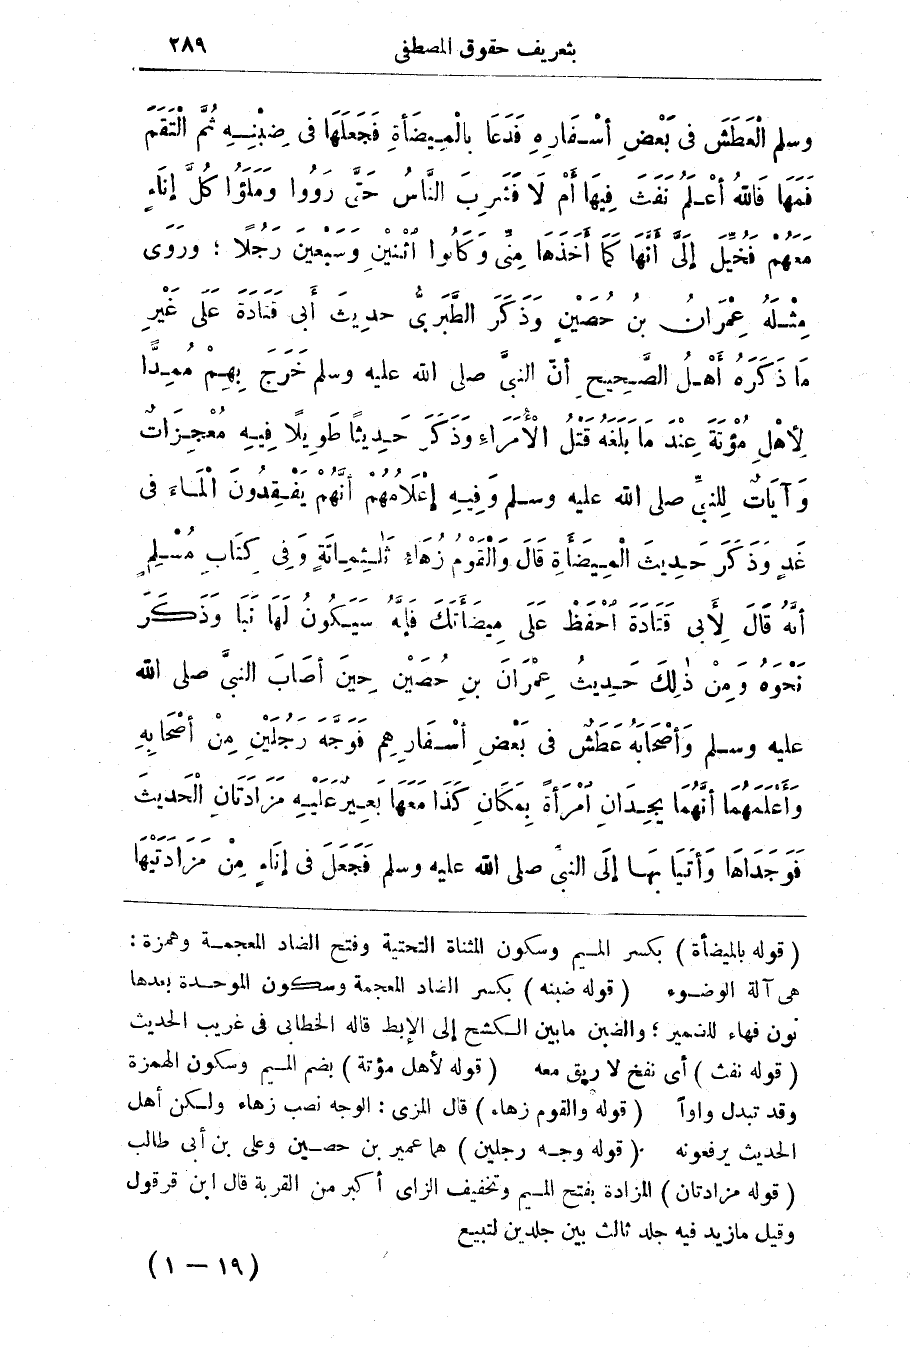 بتعريف حقوق المصطفى ٢٨٩
وسلم الْعَطَشَ فِى بَعْضِ أَسْفَارِهِ فَدَعَا بِالْمِيضَأَةِ فَجَعَلَهَا فى ضِبْنِهِ ثُمَّ الْتَقَمَ
فَمَهَا فَاللهُ أَعْلَمُ نَفَثَ فِيهَا أَمْ لَا فَشَرِبَ النَّاسُ حَتَّى رَوُوا وَمَلَؤُا كُلَّ إِنَاءٍ
مَعَهُمْ فَخُيِّلَ إِلَىَّ أَنَّهَا كَمَا أَخَذَهَا مِنِّى وَكَانُوا اثْنَيْنِ وَسَبْعِينَ رَجُلًا ؛ وَرَوَى
مِثْلَهُ عِمْرَانُ بنُ حُصَيْنٍ وَذَكَرَ الطَّبَرِىُّ حديثَ أَبى قَتَادَةَ عَلَى غَيْرِ
مَا ذَكَرَهُ أَهْلُ الصَّحِيحِ أنّ النبىَّ صلى الله عليه وسلم خَرَجَ بِهِمْ مُمِدًّا
لِأَهْلِ مُؤْتَةَ عِنْدَ مَا بَلَغَهُ قَتْلُ الْأُمَرَاءِ وَذَكَرَ حَدِيثًا طَوِيلًا فِيهِ مُعْجِزَاتٌ
وَآيَاتٌ لِلنبىِّ صلى الله عليه وسلم وَفِيهِ إِعْلَامُهُمْ أَنَّهُمْ يَفْقِدُونَ الْمَاءَ فى
غَدٍ وَذَكَرَ حَدِيثَ الْمِيضَأَةِ قَالَ وَالْقَوْمُ زُهَاءَ ثَلٰثِمِائَةٍ وَفى كِتَابِ مُسْلِمٍ
أنَّهُ قَالَ لِأَبى قَتَادَةَ احْفَظْ عَلَىَّ مِيضَأَتَكَ فَإِنَّهُ سَيَكُونُ لَهَا نَبَأٌ وَذَكَرَ
نَحْوَهُ وَمِنْ ذٰلِكَ حَدِيثُ عِمْرَانَ بنِ حُصَيْنٍ حِينَ أصَابَ النبىَّ صلى الله
عليه وسلم وَأَصْحَابَهُ عَطَشٌ فى بَعْضِ أَسْفَارِهِمْ فَوَجَّهَ رَجُلَيْنِ مِنْ أَصْحَابِهِ
وَأَعْلَمَهُمَا أَنَّهُمَا يَجِدَانِ امْرَأَةً بِمَكَانِ كَذَا مَعَهَا بَعِيرٌ عَلَيْهِ مَزَادَتَانِ الْحَدِيثَ
فَوَجَدَاهَا وَأَتَيَا بِهَا إِلَى النبىِّ صلى الله عليه وسلم فَجَعَلَ فى إِنَاءٍ مِنْ مَزَادَتَيْهَا
( قوله بالميضأة ) بكسر الميم وسكون المثناة التحتية وفتح الضاد المعجمة وهمزة :
هى آلة الوضوء ( قوله ضبنه ) بكسر الضاد المعجمة وسكون الموحدة بعدها
نون فهاء للضمير ؛ والضبن مابين الكشح إلى الإبط قاله الخطابى فى غريب الحديث
( قوله نفث ) أى نفخ لا ريق معه ( قوله لأهل مؤتة ) بضم الميم وسكون الهمزة
وقد تبدل واواً ( قوله والقوم زهاء ) قال المزى : الوجه نصب زهاء ولكن أهل
الحديث يرفعونه ( قوله وجه رجلين ) هما عمير بن حصين وعلى بن أبى طالب
( قوله مزادتان ) المزادة بفتح الميم وتخفيف الزاى أكبر من القربة قال ابن قرقول
وقيل مازيد فيه جلد ثالث بين جلدين لتبيع
(١٩ – ١)